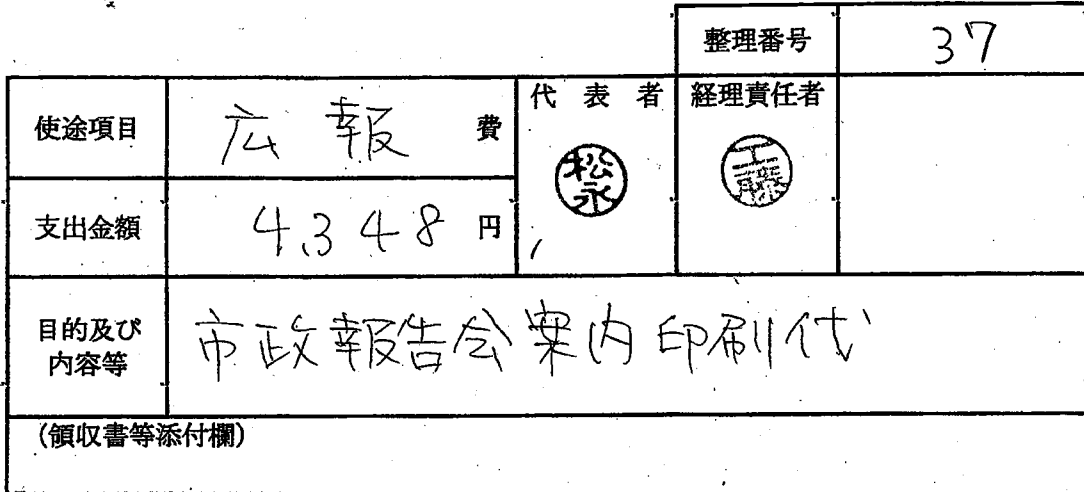 整理番号 37
使途項目 広報 費 代表者 経理責任者
松永 工藤
支出金額 4,348 円
目的及び内容等 市政報告会案内印刷代
(領収書等添付欄)